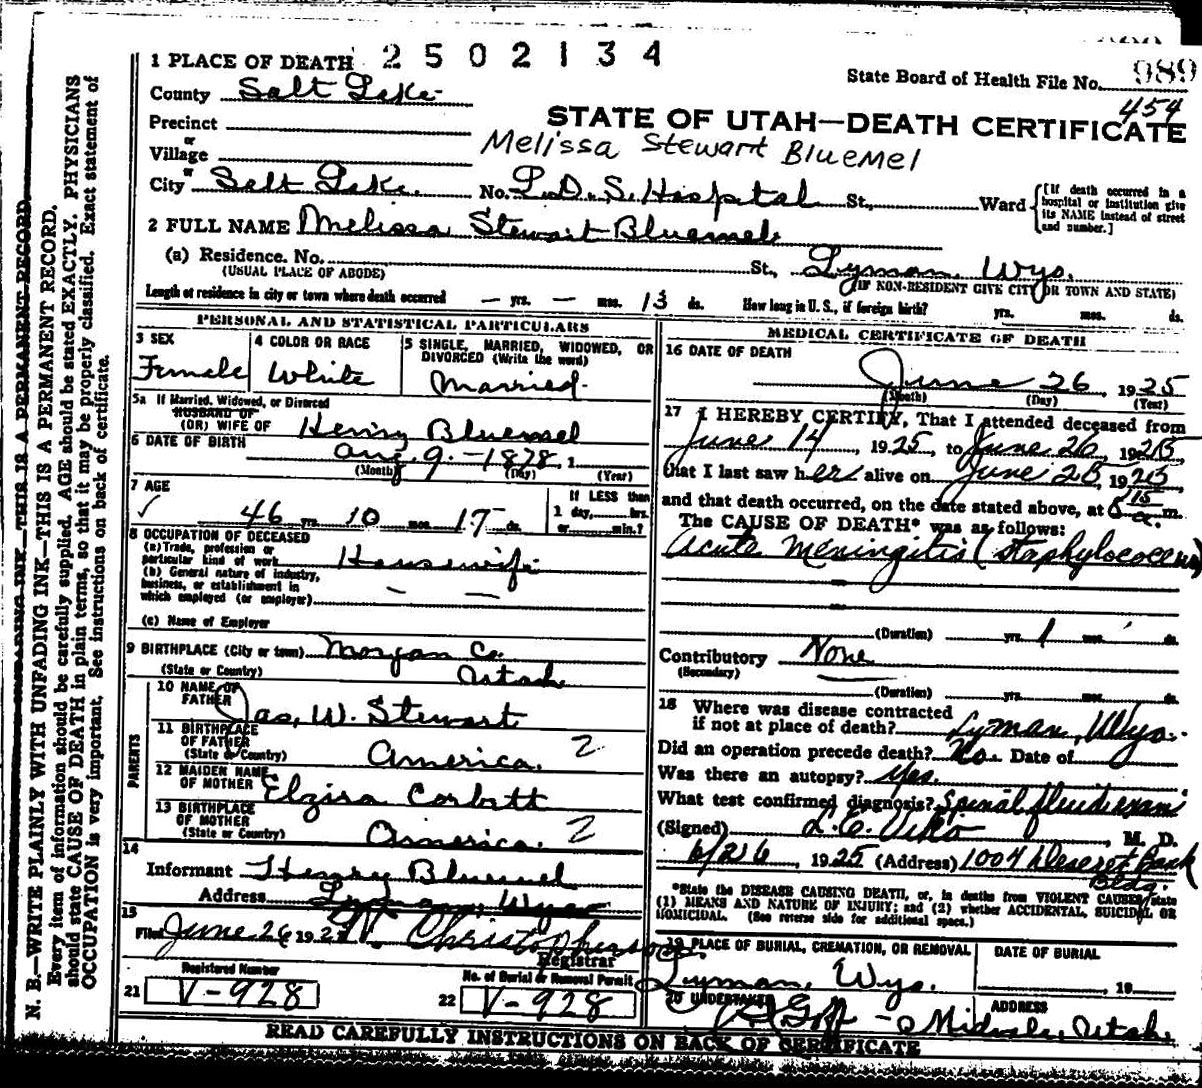 2502134
1 PLACE OF DEATH
State Board of Health File No. 989
454
County Salt Lake
STATE OF UTAH—DEATH CERTIFICATE
Precinct
or
Village
Melissa Stewart Bluemel
or
City Salt Lake. No. L.D.S. Hospital St., Ward
[If death occurred in a hospital or institution give its NAME instead of street and number.]
2 FULL NAME Melissa Stewart Bluemel
(a) Residence. No. St., Lyman, Wyo.
(USUAL PLACE OF ABODE) (IF NON-RESIDENT GIVE CITY OR TOWN AND STATE)
Length of residence in city or town where death occurred — yrs. — mos. 13 ds. How long in U. S., if foreign birth? yrs. mos. ds.
PERSONAL AND STATISTICAL PARTICULARS
3 SEX
Female
4 COLOR OR RACE
White
5 SINGLE, MARRIED, WIDOWED, OR DIVORCED (Write the word)
Married.
5a If Married, Widowed, or Divorced
HUSBAND OF
(OR) WIFE OF Henry Bluemel
6 DATE OF BIRTH Aug. 9.-1878, 1
(Month) (Day) (Year)
7 AGE
✓ 46 yrs. 10 mos. 17 ds.
If LESS than
1 day, hrs.
or min.?
8 OCCUPATION OF DECEASED
(a) Trade, profession or
particular kind of work Housewife
(b) General nature of industry,
business, or establishment in
which employed (or employer) — —
(c) Name of Employer
9 BIRTHPLACE (City or town) Morgan Co.
(State or Country) Utah
PARENTS
10 NAME OF
FATHER Jas. W. Stewart
11 BIRTHPLACE
OF FATHER
(State or Country) America. 2
12 MAIDEN NAME
OF MOTHER Elzira Corbett
13 BIRTHPLACE
OF MOTHER
(State or Country) America. 2
14
Informant Henry Bluemel
Address Lyman, Wyo
15
Filed June 26 1925
Registrar
Registered Number
21 V-928
No. of Burial or Removal Permit
22 V-928
MEDICAL CERTIFICATE OF DEATH
16 DATE OF DEATH
June 26, 1925
(Month) (Day) (Year)
17 I HEREBY CERTIFY, That I attended deceased from
June 14, 1925, to June 26, 1925
that I last saw her alive on June 25, 1925
and that death occurred, on the date stated above, at 8 15 a. m.
The CAUSE OF DEATH* was as follows:
Acute Meningitis (Staphylococcus)
(Duration) yrs. 1 mos. ds.
Contributory None
(Secondary)
(Duration) yrs. mos. ds.
18 Where was disease contracted
if not at place of death? Lyman, Wyo.
Did an operation precede death? No. Date of
Was there an autopsy? Yes.
What test confirmed diagnosis? Spinal fluid exam
(Signed) L.E. Viko, M. D.
6/26, 1925 (Address) 1004 Deseret Bank
Bldg.
*State the DISEASE CAUSING DEATH, or, in deaths from VIOLENT CAUSES, state
(1) MEANS AND NATURE OF INJURY; and (2) whether ACCIDENTAL, SUICIDAL OR
HOMICIDAL. (See reverse side for additional space.)
19 PLACE OF BURIAL, CREMATION, OR REMOVAL
Lyman, Wyo.
DATE OF BURIAL
, 19
20 UNDERTAKER
Goff
ADDRESS
Midvale, Utah.
READ CAREFULLY INSTRUCTIONS ON BACK OF CERTIFICATE
N. B.—WRITE PLAINLY WITH UNFADING INK—THIS IS A PERMANENT RECORD.
Every item of information should be carefully supplied. AGE should be stated EXACTLY. PHYSICIANS
should state CAUSE OF DEATH in plain terms, so that it may be properly classified. Exact statement of
OCCUPATION is very important. See instructions on back of certificate.